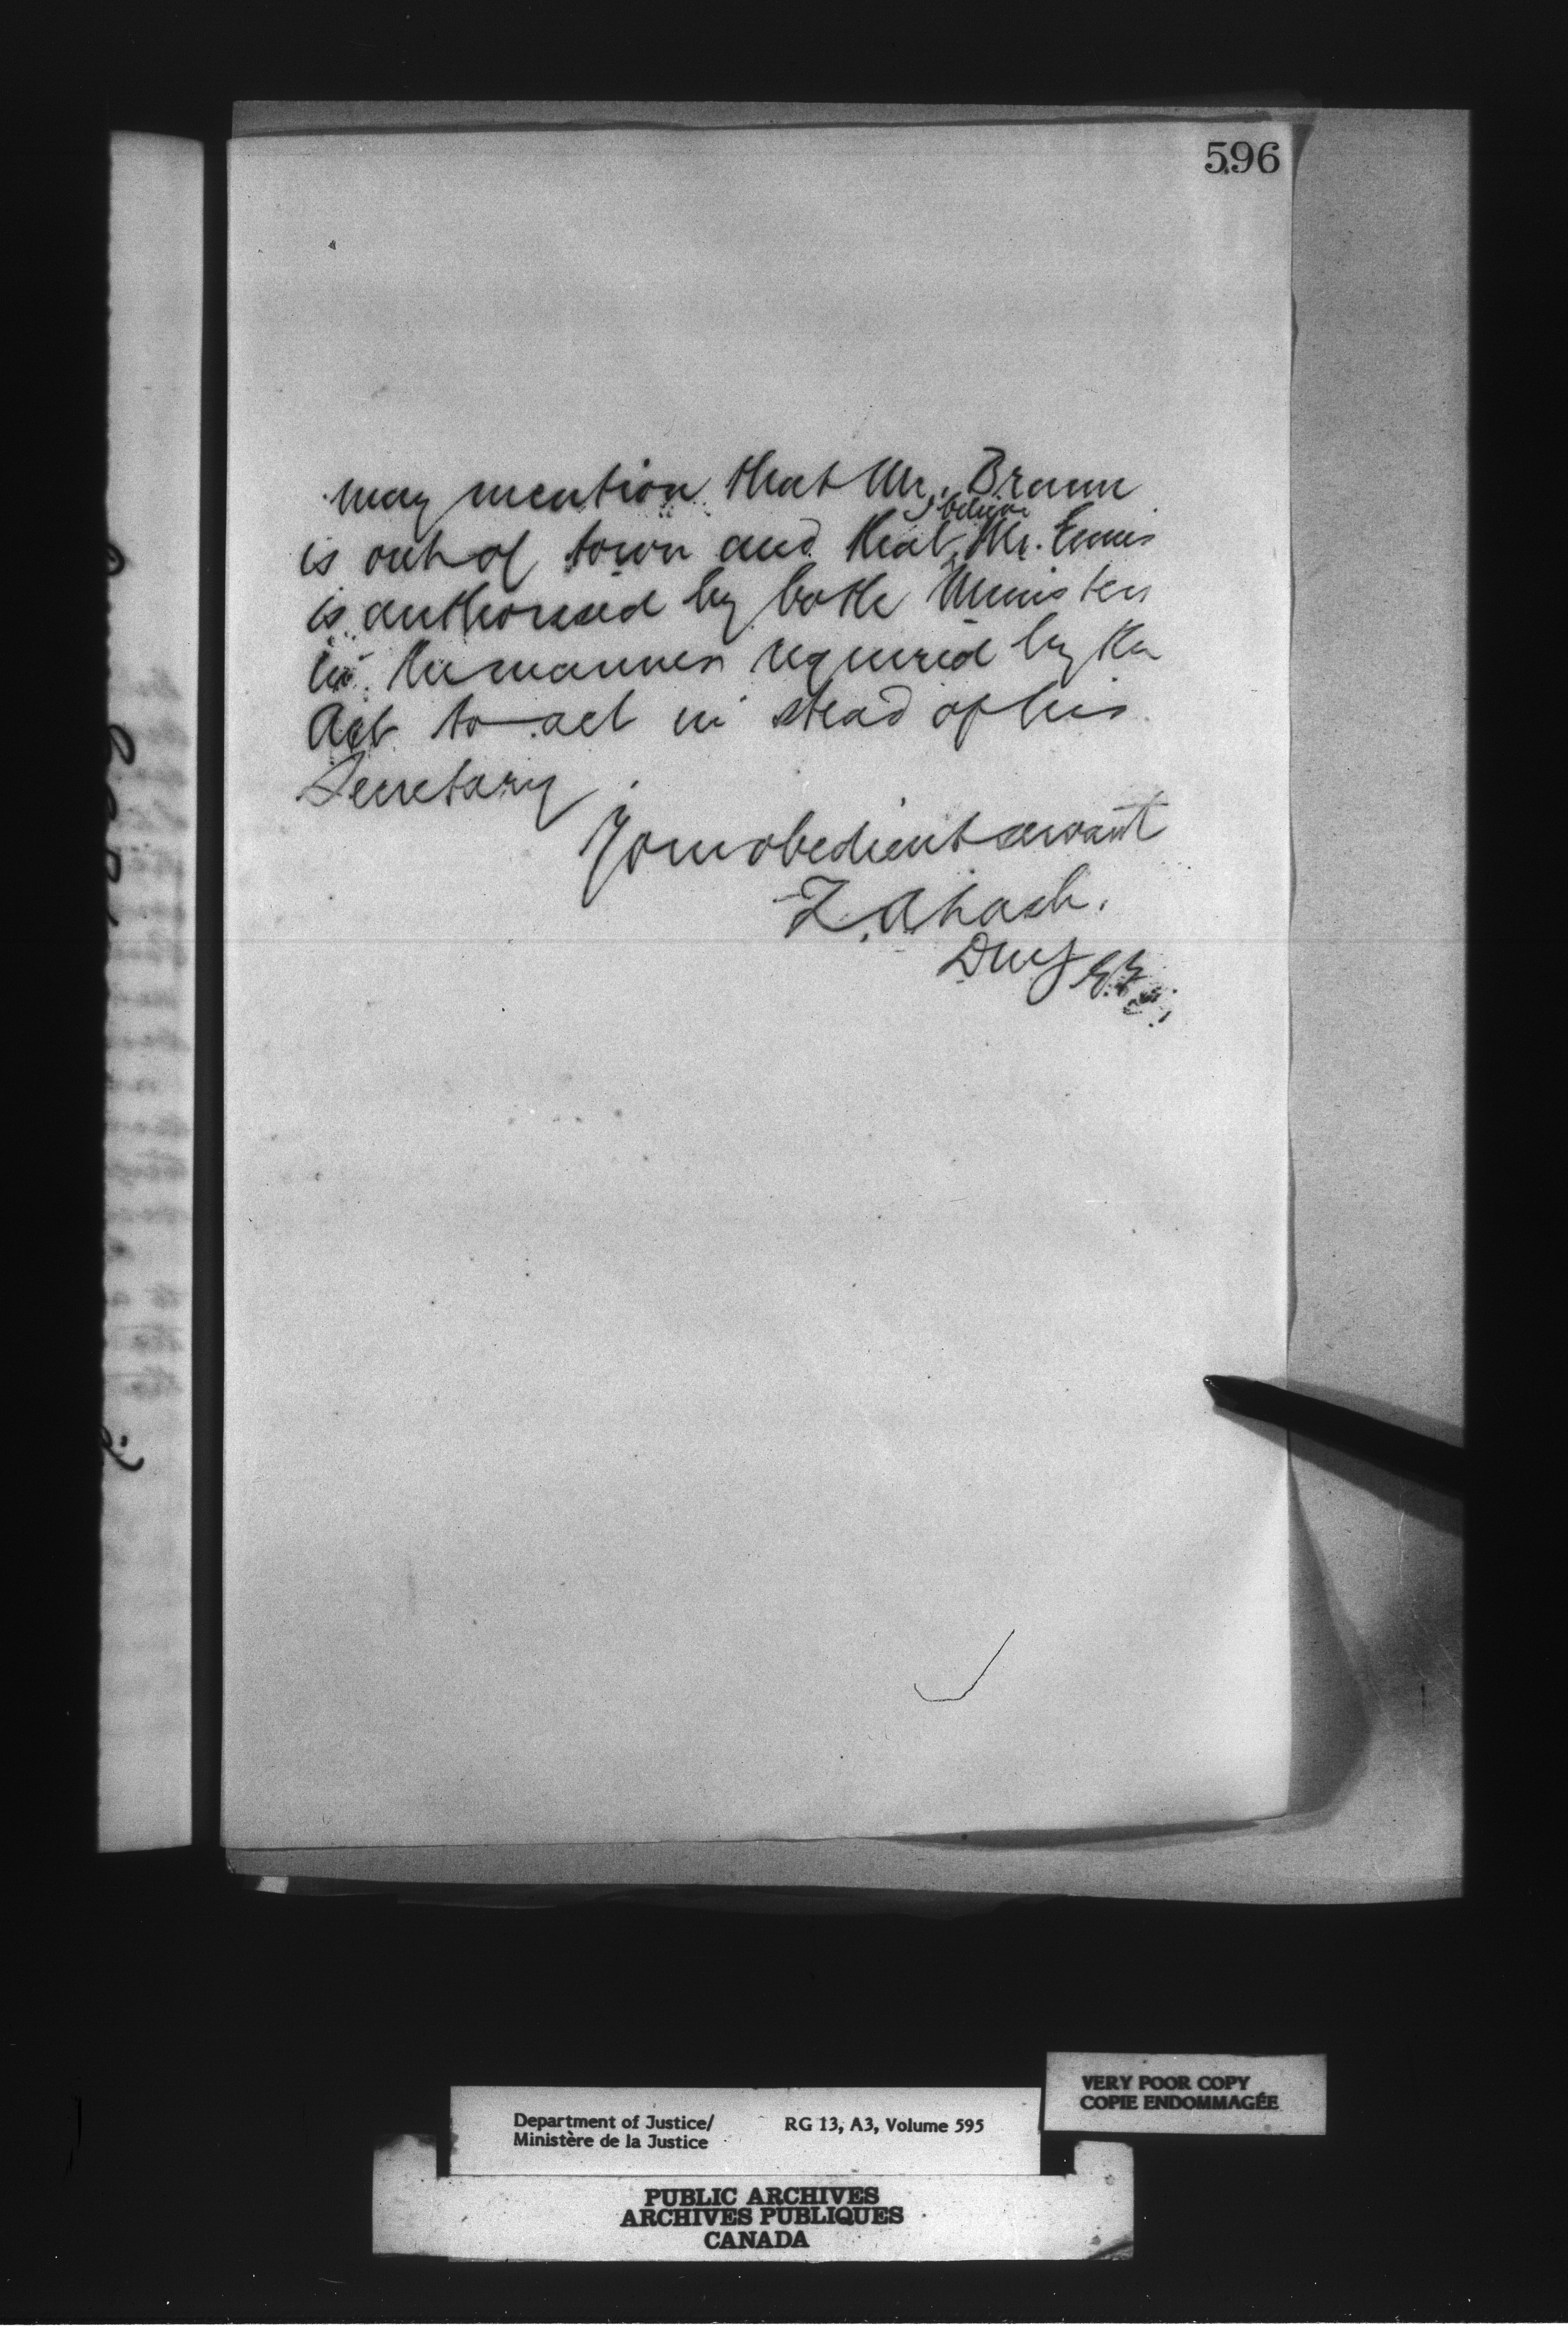 596
may mention that Mr. Braun
I believe
is out of town and that Mr. Ennis
is authorized by both Ministers
in the manner required by the
Act to act in stead of his
Secretary.
Your obedient servant
Z. A. Lash.
DMJ
VERY POOR COPY
COPIE ENDOMMAGÉE
Department of Justice/ RG 13, A3, Volume 595
Ministère de la Justice
PUBLIC ARCHIVES
ARCHIVES PUBLIQUES
CANADA